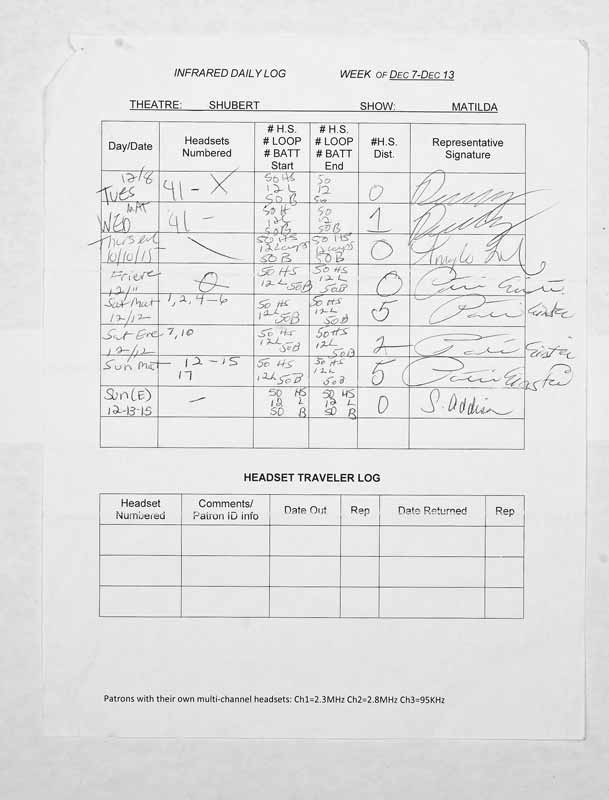 INFRARED DAILY LOG WEEK OF DEC 7-DEC 13
THEATRE: SHUBERT SHOW: MATILDA
Day/Date Headsets Numbered # H.S. # LOOP # BATT Start # H.S. # LOOP # BATT End #H.S. Dist. Representative Signature
12/8 Tues 41 - X 50 HS 12 L 50 B 50 12 50 0
MAT WED 41 - 50 H 12 L 50B 50 12 50B 1
10/10/15 50 HS 12 Loops 50 B 50 HS 12 Loops 50B 0
12/11 0 50 HS 12 L 50B 50 HS 12L 50B 0
Sat Mat 12/12 1, 2, 4-6 50 HS 12L 50B 50 HS 12L 50B 5
Sat Eve 12/12 7, 10 50 HS 12L 50B 50 HS 12L 50B 2
Sun Mat 12-15 17 50 HS 12L 50B 50 HS 12L 50B 5
Sun (E) 12-13-15 - 50 HS 12 L 50 B 50 HS 12 L 50 B 0 S. Addison
HEADSET TRAVELER LOG
Headset Numbered Comments/ Patron ID info Date Out Rep Date Returned Rep
Patrons with their own multi-channel headsets: Ch1=2.3MHz Ch2=2.8MHz Ch3=95KHz